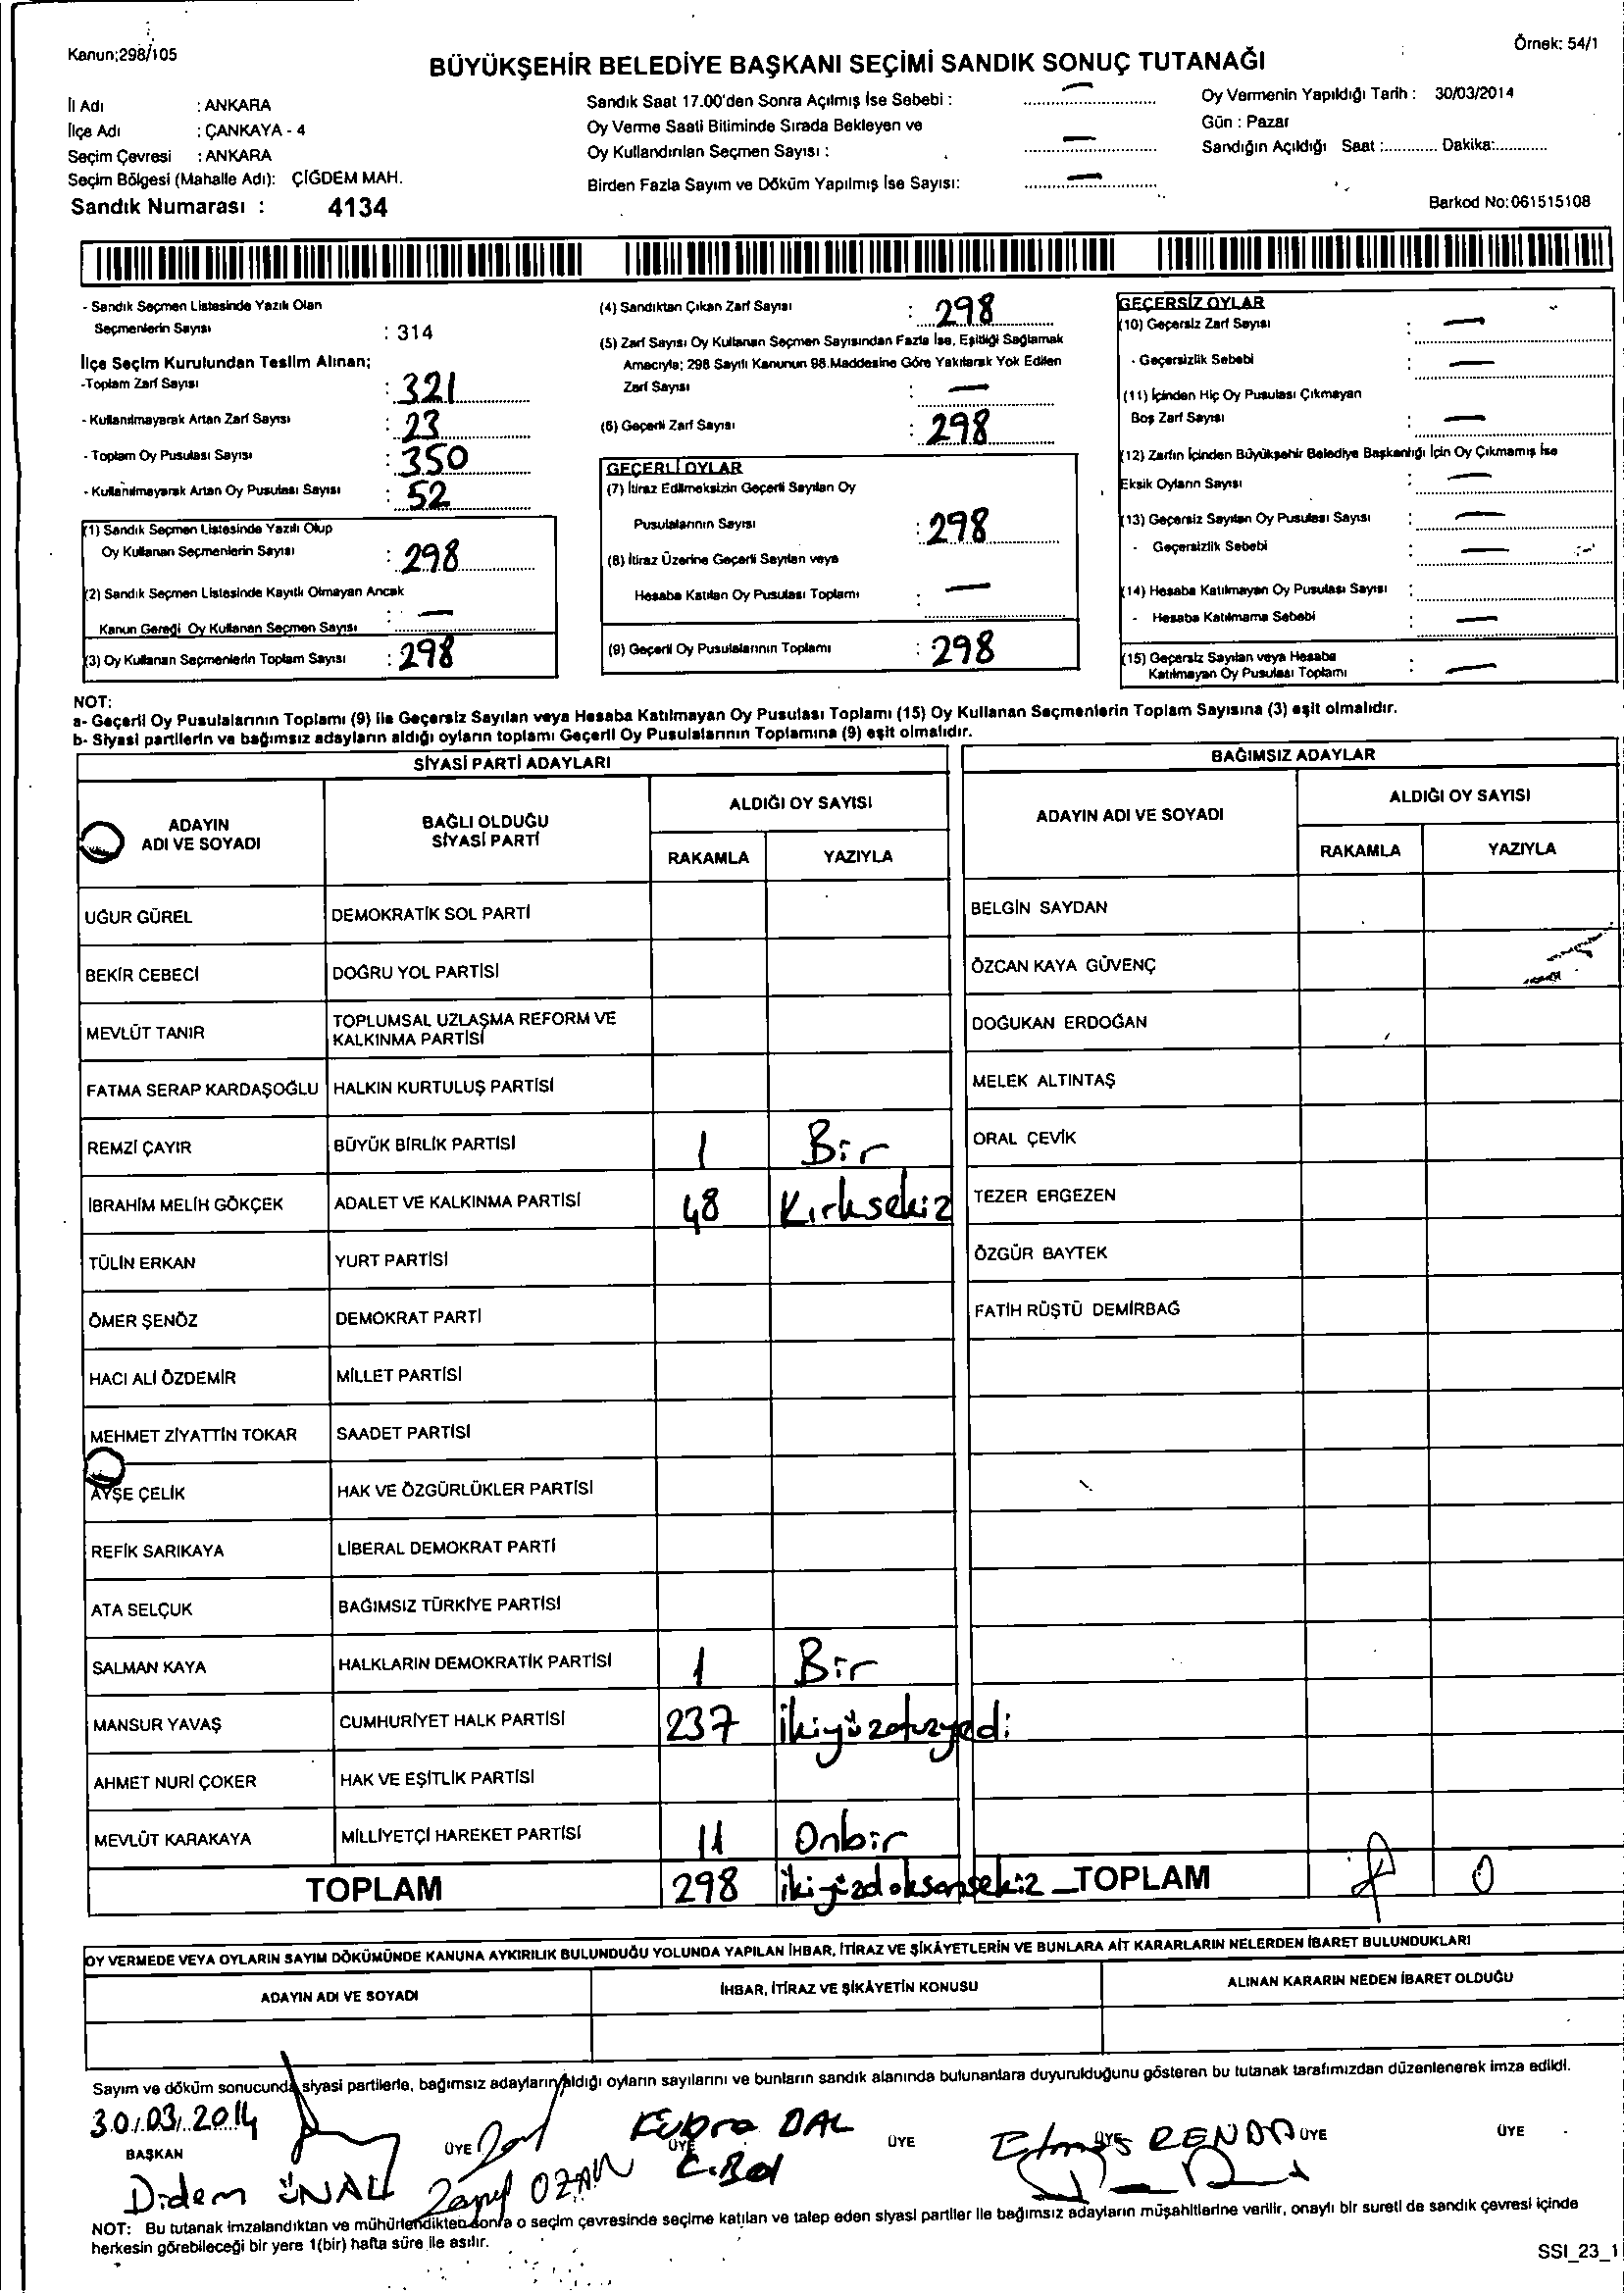 Kanun:298/105
Örnek: 54/1
BÜYÜKŞEHİR BELEDİYE BAŞKANI SEÇİMİ SANDIK SONUÇ TUTANAĞI
İl Adı : ANKARA
İlçe Adı : ÇANKAYA - 4
Seçim Çevresi : ANKARA
Seçim Bölgesi (Mahalle Adı): ÇİĞDEM MAH.
Sandık Numarası : 4134
Sandık Saat 17.00'den Sonra Açılmış İse Sebebi : —
Oy Verme Saati Bitiminde Sırada Bekleyen ve
Oy Kullandırılan Seçmen Sayısı : —
Birden Fazla Sayım ve Döküm Yapılmış İse Sayısı: —
Oy Vermenin Yapıldığı Tarih : 30/03/2014
Gün : Pazar
Sandığın Açıldığı Saat :............ Dakika:............
Barkod No:061515108
- Sandık Seçmen Listesinde Yazılı Olan
Seçmenlerin Sayısı : 314
İlçe Seçim Kurulundan Teslim Alınan;
-Toplam Zarf Sayısı : 321
- Kullanılmayarak Artan Zarf Sayısı : 23
- Toplam Oy Pusulası Sayısı : 350
- Kullanılmayarak Artan Oy Pusulası Sayısı : 52
(1) Sandık Seçmen Listesinde Yazılı Olup
Oy Kullanan Seçmenlerin Sayısı : 298
(2) Sandık Seçmen Listesinde Kayıtlı Olmayan Ancak
Kanun Gereği Oy Kullanan Seçmen Sayısı : —
(3) Oy Kullanan Seçmenlerin Toplam Sayısı : 298
(4) Sandıktan Çıkan Zarf Sayısı : 298
(5) Zarf Sayısı Oy Kullanan Seçmen Sayısından Fazla İse, Eşitliği Sağlamak
Amacıyla; 298 Sayılı Kanunun 98.Maddesine Göre Yakılarak Yok Edilen
Zarf Sayısı : —
(6) Geçerli Zarf Sayısı : 298
GEÇERLİ OYLAR
(7) İtiraz Edilmeksizin Geçerli Sayılan Oy
Pusulalarının Sayısı : 298
(8) İtiraz Üzerine Geçerli Sayılan veya
Hesaba Katılan Oy Pusulası Toplamı : —
(9) Geçerli Oy Pusulalarının Toplamı : 298
GEÇERSİZ OYLAR
(10) Geçersiz Zarf Sayısı : —
- Geçersizlik Sebebi : —
(11) İçinden Hiç Oy Pusulası Çıkmayan
Boş Zarf Sayısı : —
(12) Zarfın İçinden Büyükşehir Belediye Başkanlığı İçin Oy Çıkmamış İse
Eksik Oyların Sayısı : —
(13) Geçersiz Sayılan Oy Pusulası Sayısı : —
- Geçersizlik Sebebi : —
(14) Hesaba Katılmayan Oy Pusulası Sayısı :
- Hesaba Katılmama Sebebi : —
(15) Geçersiz Sayılan veya Hesaba
Katılmayan Oy Pusulası Toplamı : —
NOT:
a- Geçerli Oy Pusulalarının Toplamı (9) ile Geçersiz Sayılan veya Hesaba Katılmayan Oy Pusulası Toplamı (15) Oy Kullanan Seçmenlerin Toplam Sayısına (3) eşit olmalıdır.
b- Siyasi partilerin ve bağımsız adayların aldığı oyların toplamı Geçerli Oy Pusulalarının Toplamına (9) eşit olmalıdır.
SİYASİ PARTİ ADAYLARI
ADAYIN ADI VE SOYADI
BAĞLI OLDUĞU SİYASİ PARTİ
ALDIĞI OY SAYISI
RAKAMLA YAZIYLA
UĞUR GÜREL DEMOKRATİK SOL PARTİ
BEKİR CEBECİ DOĞRU YOL PARTİSİ
MEVLÜT TANIR TOPLUMSAL UZLAŞMA REFORM VE KALKINMA PARTİSİ
FATMA SERAP KARDAŞOĞLU HALKIN KURTULUŞ PARTİSİ
REMZİ ÇAYIR BÜYÜK BİRLİK PARTİSİ 1 Bir
İBRAHİM MELİH GÖKÇEK ADALET VE KALKINMA PARTİSİ 48 Kırksekiz
TÜLİN ERKAN YURT PARTİSİ
ÖMER ŞENÖZ DEMOKRAT PARTİ
HACI ALİ ÖZDEMİR MİLLET PARTİSİ
MEHMET ZİYATTİN TOKAR SAADET PARTİSİ
AYŞE ÇELİK HAK VE ÖZGÜRLÜKLER PARTİSİ
REFİK SARIKAYA LİBERAL DEMOKRAT PARTİ
ATA SELÇUK BAĞIMSIZ TÜRKİYE PARTİSİ
SALMAN KAYA HALKLARIN DEMOKRATİK PARTİSİ 1 Bir
MANSUR YAVAŞ CUMHURİYET HALK PARTİSİ 237 ikiyüzotuzyedi
AHMET NURİ ÇOKER HAK VE EŞİTLİK PARTİSİ
MEVLÜT KARAKAYA MİLLİYETÇİ HAREKET PARTİSİ 11 Onbir
TOPLAM 298 ikiyüzdoksansekiz
BAĞIMSIZ ADAYLAR
ADAYIN ADI VE SOYADI
ALDIĞI OY SAYISI
RAKAMLA YAZIYLA
BELGİN SAYDAN
ÖZCAN KAYA GÜVENÇ
DOĞUKAN ERDOĞAN
MELEK ALTINTAŞ
ORAL ÇEVİK
TEZER ERGEZEN
ÖZGÜR BAYTEK
FATİH RÜŞTÜ DEMİRBAĞ
TOPLAM 0
OY VERMEDE VEYA OYLARIN SAYIM DÖKÜMÜNDE KANUNA AYKIRILIK BULUNDUĞU YOLUNDA YAPILAN İHBAR, İTİRAZ VE ŞİKÂYETLERİN VE BUNLARA AİT KARARLARIN NELERDEN İBARET BULUNDUKLARI
ADAYIN ADI VE SOYADI
İHBAR, İTİRAZ VE ŞİKÂYETİN KONUSU
ALINAN KARARIN NEDEN İBARET OLDUĞU
Sayım ve döküm sonucunda siyasi partilerle, bağımsız adayların aldığı oyların sayılarını ve bunların sandık alanında bulunanlara duyurulduğunu gösteren bu tutanak tarafımızdan düzenlenerek imza edildi.
30/03/2014
BAŞKAN ÜYE ÜYE ÜYE ÜYE ÜYE ÜYE
Didem ÜNAL
Zeynep OZAN
Kübra DAL
Elmas RENDA
NOT: Bu tutanak imzalandıktan ve mühürlendikten sonra o seçim çevresinde seçime katılan ve talep eden siyasi partiler ile bağımsız adayların müşahitlerine verilir, onaylı bir sureti de sandık çevresi içinde
herkesin görebileceği bir yere 1(bir) hafta süre ile asılır.
SSI_23_1